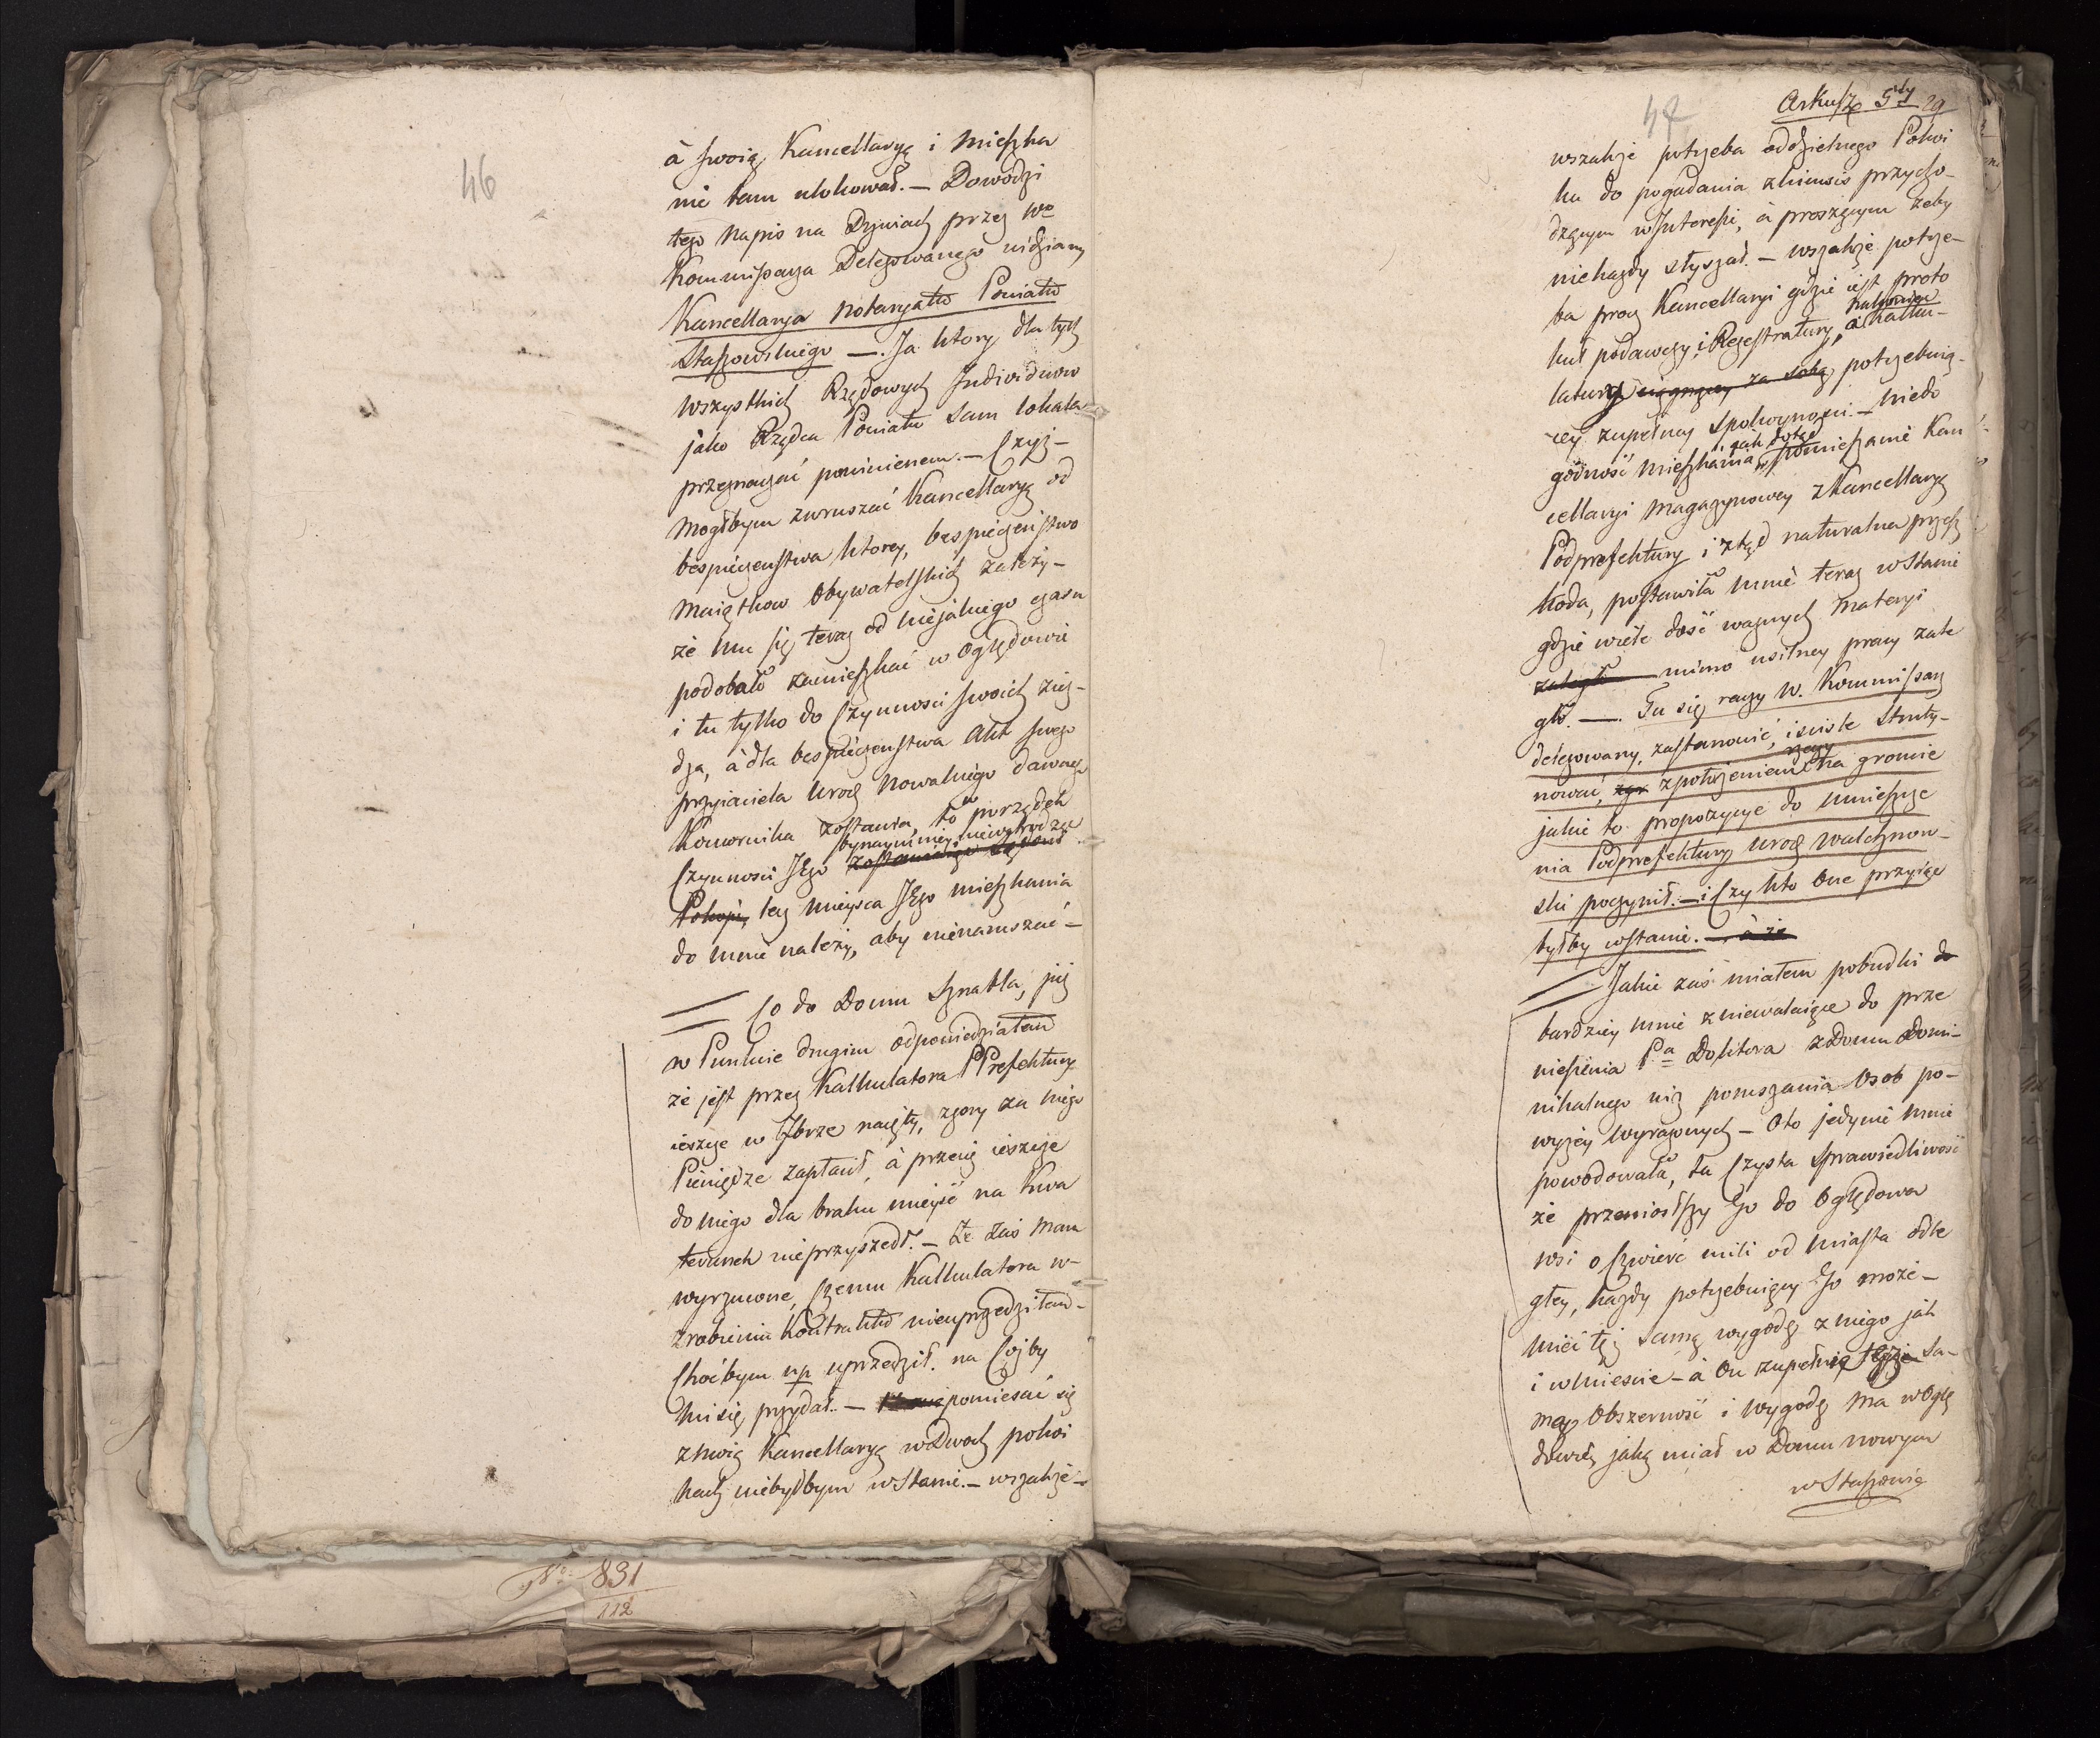 46
à swoią Kancellaryą i Mieszka
nie tam ulokował. — Dowodzi
tego Napis na Drzwiach przez We
Kommissarza Delegowanego widziany
Kancellarya Notaryatu Powiatu
Staszowskiego —. Ja ktory dla tych
wszystkich Rządowych Individuow
jako Rządca Powiatu Sam lokala
przeznaczać powinienem. — Czyż —
Mogłbym zwruszać Kancellaryą od
bespieczenstwa ktorey, bespieczenstwo
Maiątkow Obywatelskich zależy —
że mu się teraz od niejakiego czasu
podobało zamieszkać w Oględowie
i tu tylko do Czynnosci swoich ziez-
dza, à dla bespieczenstwa Akt swego
przyiaciela Urod Nowalskiego dawnego
Komornika zostawia, to w porządek
bynaymniey niewchodzę
Czynnosci Jego
Pokoju, lecz mieysca Jego mieszkania
do mnie należy, aby nienaruszać —
Co do Domu Sznabla, już
w Punkcie drugim odpowiedziałem
że jest przez Kalkulatora PPrefektury
ieszcze w 7brze naięty, zgory za niego
Pieniędze zapłacił, à przecię ieszcze
do niego dla braku mieysć na Kwa
terunek nieprzyszedł. — Że zaś mam
wyrzucone, czemu Kalkulatora w-
zrobieniu Kontraktu nieuprzedziłem —
Choćbym up uprzedził. na Cożby
mi się przydał. — pomieścić się
z moią Kancellaryą w Dwoch poko
iach niebyłbym w Stanie. — wszakże —
No 831
112
47
Arkusz 5ty 29
wszakże potrzeba oddzielnego Poko
iku do pogadania z kimsis przycho-
dzącym w Interessie, à proszącym żeby
niekażdy słyszał. — wszakże potrze-
ba procz Kancellaryi gdzie iest proto
kuł podawczy, i Regestratury, à Kalku-
latury ciągnącey za sobą potrzebuią-
cey zupełney Spokoynosci. — Niedo
jak dotąd
godność Mieszkania, pomieszanie Kan
cellaryi Magazynowey z Kancellaryą
Podprefektury i ztąd naturalna przesz
koda, postawiła mnie teraz w Stanie
gdzie wiele dość ważnych Materyi
zaległo mimo usilney pracy zale
gło. —. Tu się raczy W. Kommissarz
delegowany, zastanowić, i sciśle Skruty-
nować, z położeniem rzeczy na gruncie
jakie to propozycye do umieszcze
nia Podprefektury Urod Walchnow-
ski poczynił. — i Czy kto One przyiąc
byłby w Stanie. — à że
Jakie zaś miałem pobudki do
bardziey mnie zniewalaiące do prze
niesienia Pa Doktora z Domu Domi-
nikalnego niz poruszania Osob po-
wyżey wyrażonych — Oto jedynie mnie
powodowała, ta Czysta Sprawiedliwość
że przeniosłszy Go do Oględowa
wsi o Cwierć mili od Miasta odle
głey, każdy potrzebuiący Go może —
Mieć tęż samą wygodę z niego jak
i w Mieście — à On zupełnie Sa-
mą Obszerność i wygodę ma w Oglę
dowie, jaką miał w Domu Nowym
w Staszowie